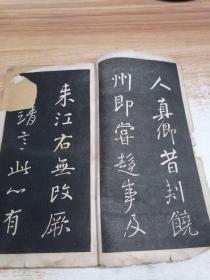 人真卿昔刺饒
州即嘗趍事及
来江右無改厥
靖言此心有